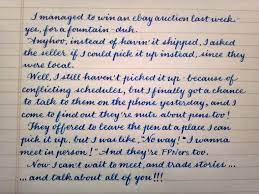 I managed to win an ebay auction last week-
yes, for a fountain-duh.
Anyhoo, instead of havin' it shipped, I asked
the seller if I could pick it up instead, since they
were local.
Well, I still haven't picked it up - because of
conflicting schedules, but I finally got a chance
to talk to them on the phone yesterday, and I
come to find out they're nuts about pens too!
They offered to leave the pen at a place I can
pick it up, but I was like, "No way!" "I wanna
meet in person!" And they're FPNers too.
Now I can't wait to meet, and trade stories ...
... and talk about all of you!!!